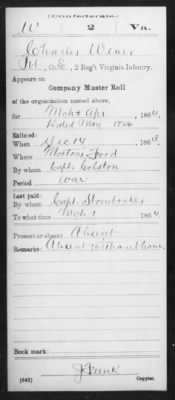 (Confederate.)
W 2 Va.
Charles Wener
Pvt, Co. E, 2 Reg't Virginia Infantry.
Appears on
Company Muster Roll
of the organization named above,
for Mch & Apr, 1864
Dated May 1864
Enlisted:
When Dec 14, 1863
Where Mortons Ford
By whom Capt. Colston
Period war
Last paid:
By whom Capt. Stonebraker
To what time Mch 1, 1864
Present or absent Absent
Remarks: Absent without leave
Book mark:
J Trunk
(642) Copyist.